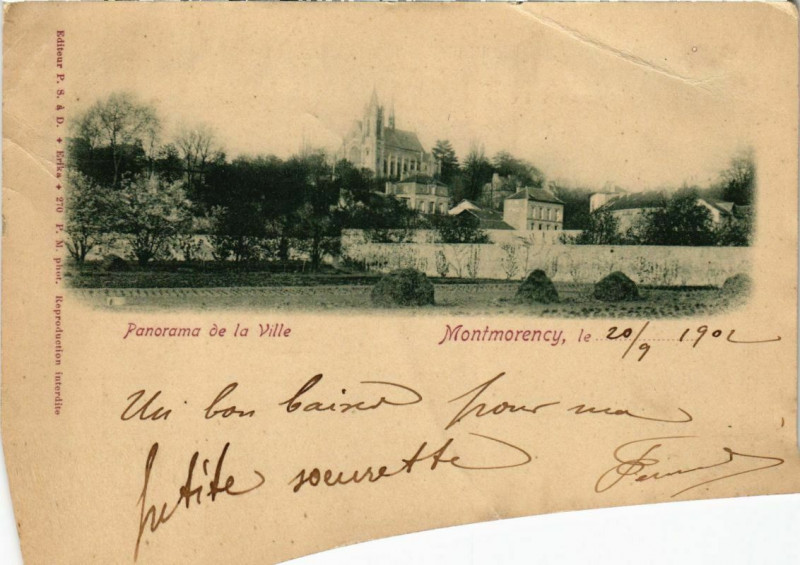 Editeur P. S. à D. ✦ Erika ✦ 270 P. M. phot. Reproduction interdite
Panorama de la Ville
Montmorency, le 20/9 1902
Un bon baiser pour ma
petite soeurette